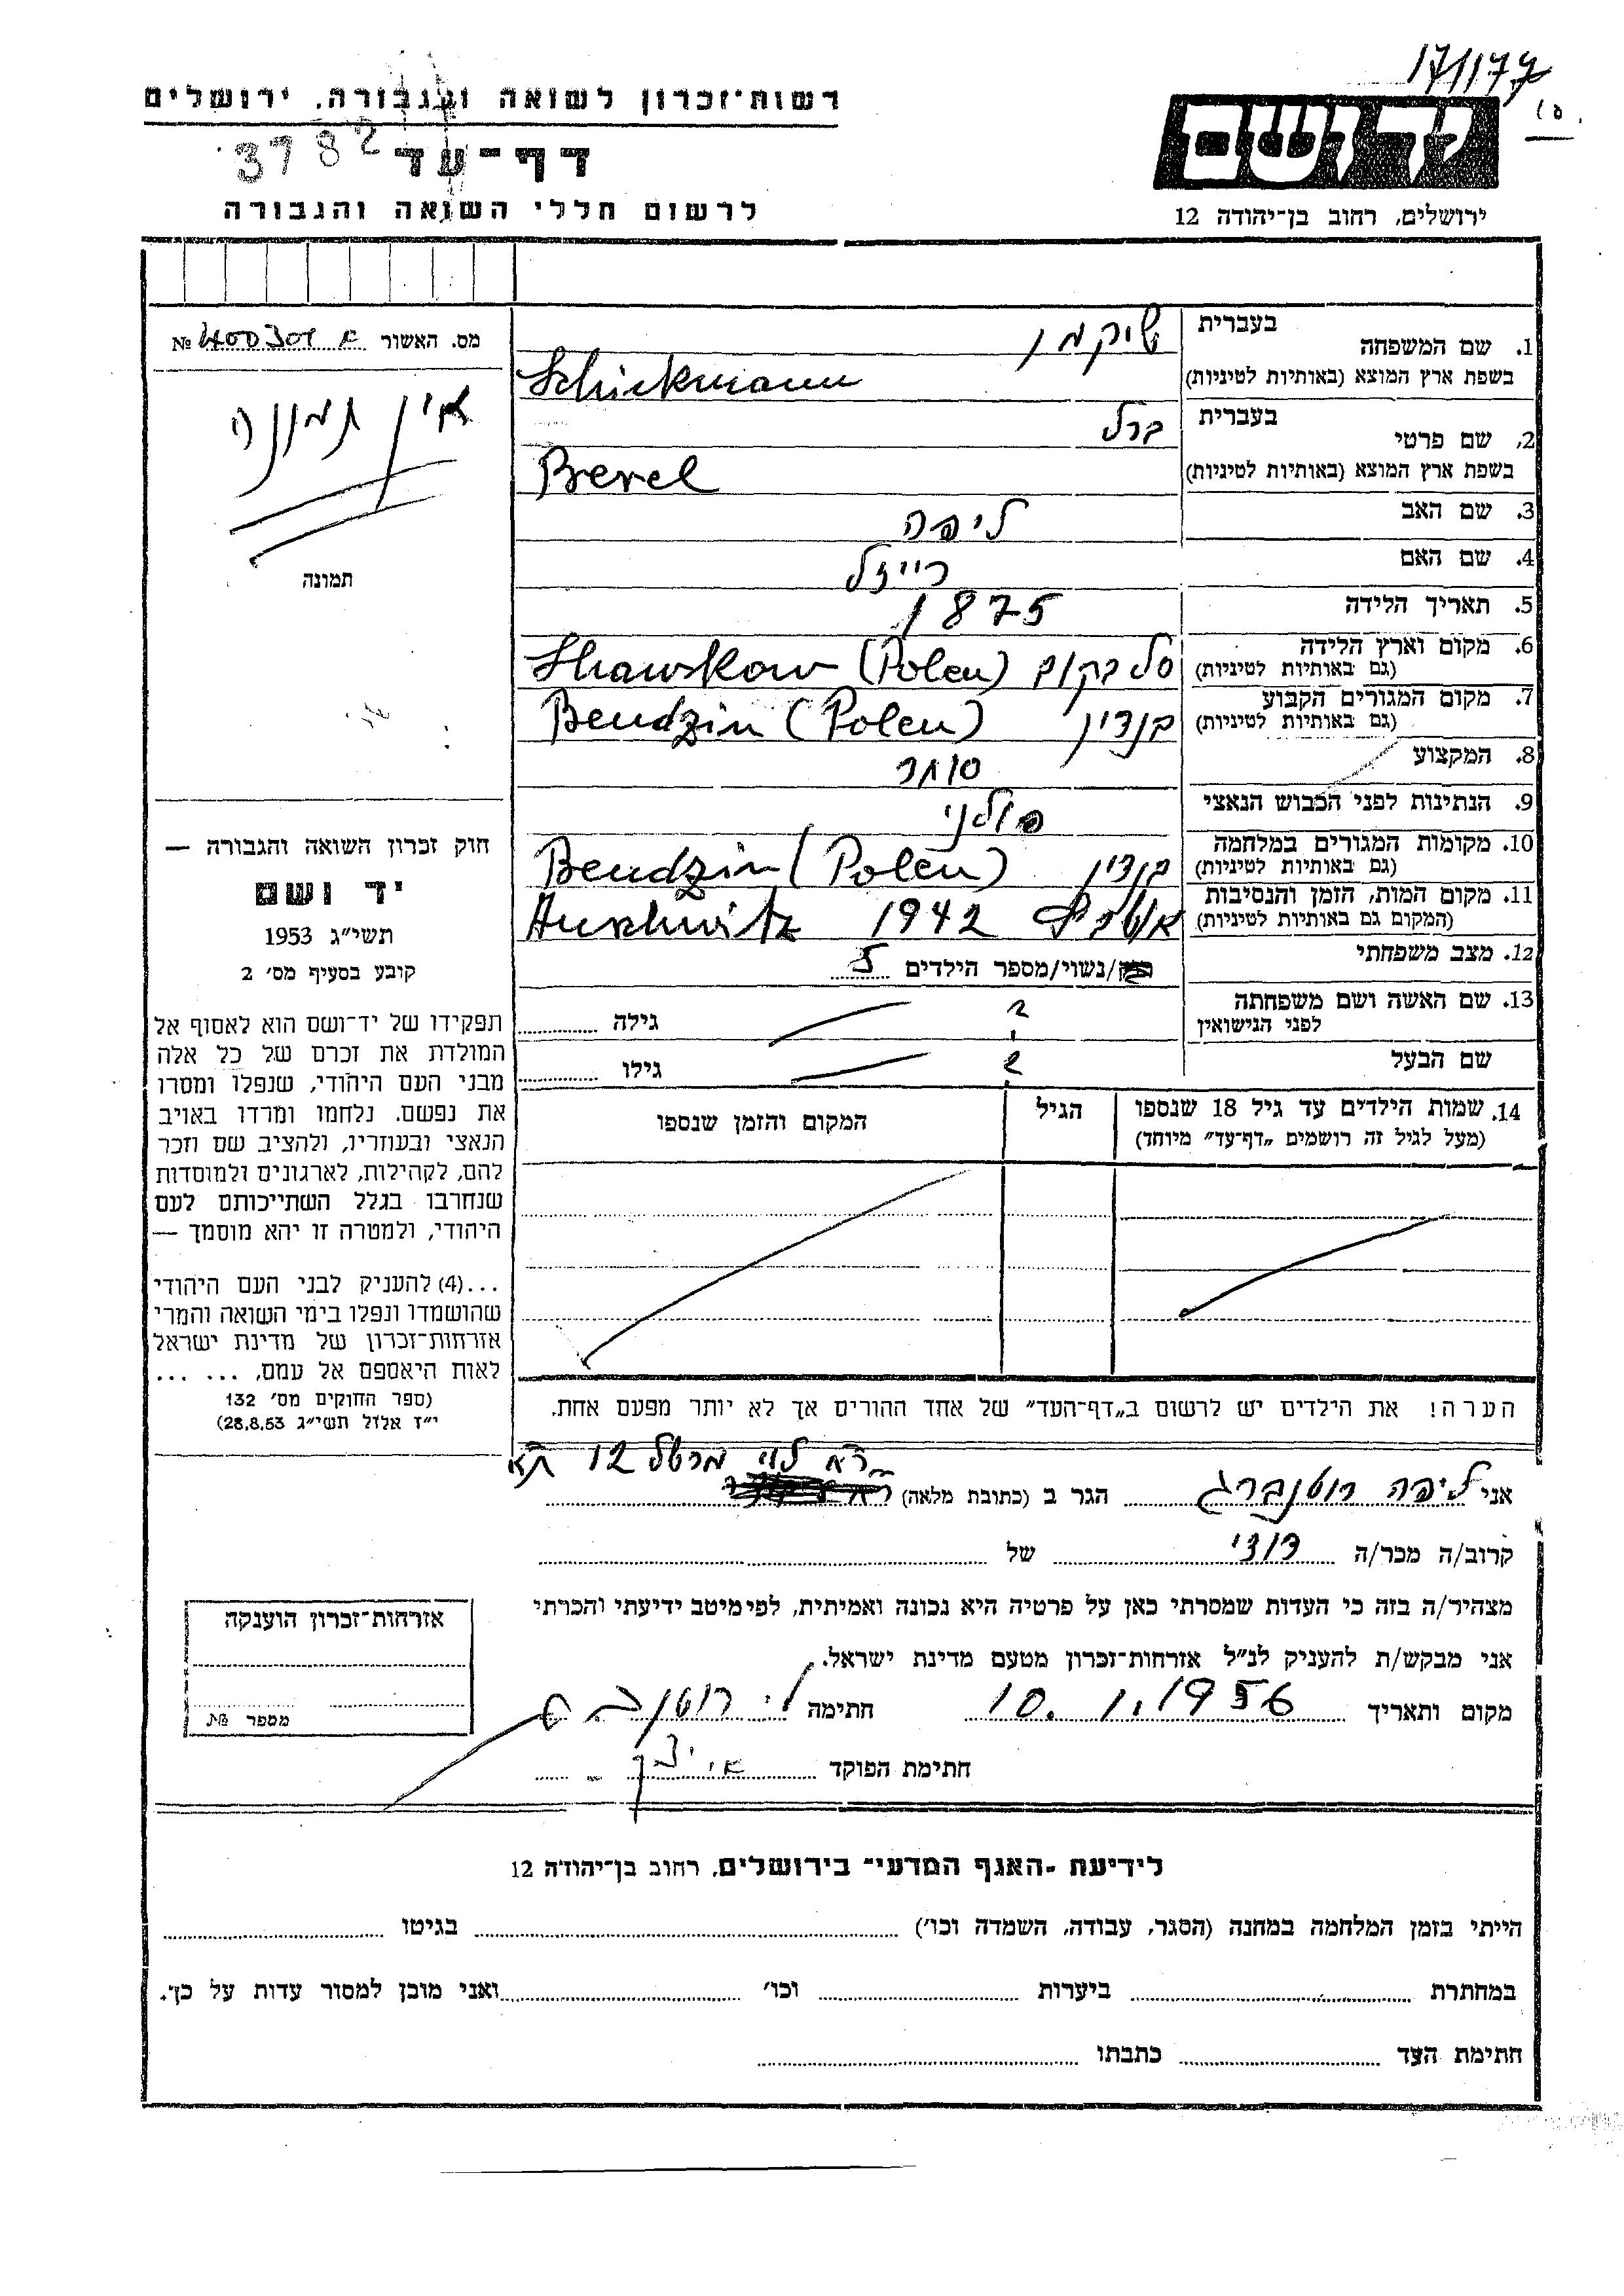 17/177
רשות־זכרון לשואה ולגבורה, ירושלים
דף־עד
3782
לרשום חללי השואה והגבורה
יד ושם
ירושלים, רחוב בן־יהודה 12
מס. האשור №
אין תמונה
תמונה
חוק זכרון השואה והגבורה —
יד ושם
תשי״ג 1953
קובע בסעיף מס׳ 2
תפקידו של יד־ושם הוא לאסוף אל
המולדת את זכרם של כל אלה
מבני העם היהודי, שנפלו ומסרו
את נפשם. נלחמו ומרדו באויב
הנאצי ובעוזריו, ולהציב שם וזכר
להם, לקהילות, לארגונים ולמוסדות
שנחרבו בגלל השתייכותם לעם
היהודי, ולמטרה זו יהא מוסמך —
...(4) להעניק לבני העם היהודי
שהושמדו ונפלו בימי השואה והמרי
אזרחות־זכרון של מדינת ישראל
לאות היאספם אל עמם, ... ...
(ספר החוקים מס׳ 132
י״ז אלול תשי״ג 28.8.53)
1. שם המשפחה בעברית שיקמן
בשפת ארץ המוצא (באותיות לטיניות) Schickmann
2. שם פרטי בעברית ברל
בשפת ארץ המוצא (באותיות לטיניות) Berel
3. שם האב ליפה
4. שם האם רייזל
5. תאריך הלידה 1875
6. מקום וארץ הלידה
(גם באותיות לטיניות) סלבקוב (Polen)
7. מקום המגורים הקבוע
(גם באותיות לטיניות) בנדין Bendzin (Polen)
8. המקצוע סוחר
9. הנתינות לפני הכבוש הנאצי פולני
10. מקומות המגורים במלחמה
(גם באותיות לטיניות) בנדין Bendzin (Polen)
11. מקום המות, הזמן והנסיבות
(המקום גם באותיות לטיניות) 1942 Auschwitz
12. מצב משפחתי /נשוי/מספר הילדים 5
13. שם האשה ושם משפחתה ? גילה
לפני הנישואין
שם הבעל ? גילו
14. שמות הילדים עד גיל 18 שנספו הגיל המקום והזמן שנספו
(מעל לגיל זה רושמים „דף־עד״ מיוחד)
הערה! את הילדים יש לרשום ב„דף־העד״ של אחד ההורים אך לא יותר מפעם אחת.
12 תא
אני ליפה רוטנברג הגר ב (כתובת מלאה)
קרוב/ה מכר/ה דודי של
מצהיר/ה בזה כי העדות שמסרתי כאן על פרטיה היא נכונה ואמיתית, לפי מיטב ידיעתי והכרתי
אני מבקש/ת להעניק לנ״ל אזרחות־זכרון מטעם מדינת ישראל.
מקום ותאריך 10.1.1956 חתימה
חתימת הפוקד
אזרחות־זכרון הוענקה
מספר №
לידיעת ״האגף המדעי״ בירושלים, רחוב בן־יהודה 12
הייתי בזמן המלחמה במחנה (הסגר, עבודה, השמדה וכו׳) בגיטו
במחתרת ביערות וכו׳ ואני מוכן למסור עדות על כך.
חתימת העד כתבתו